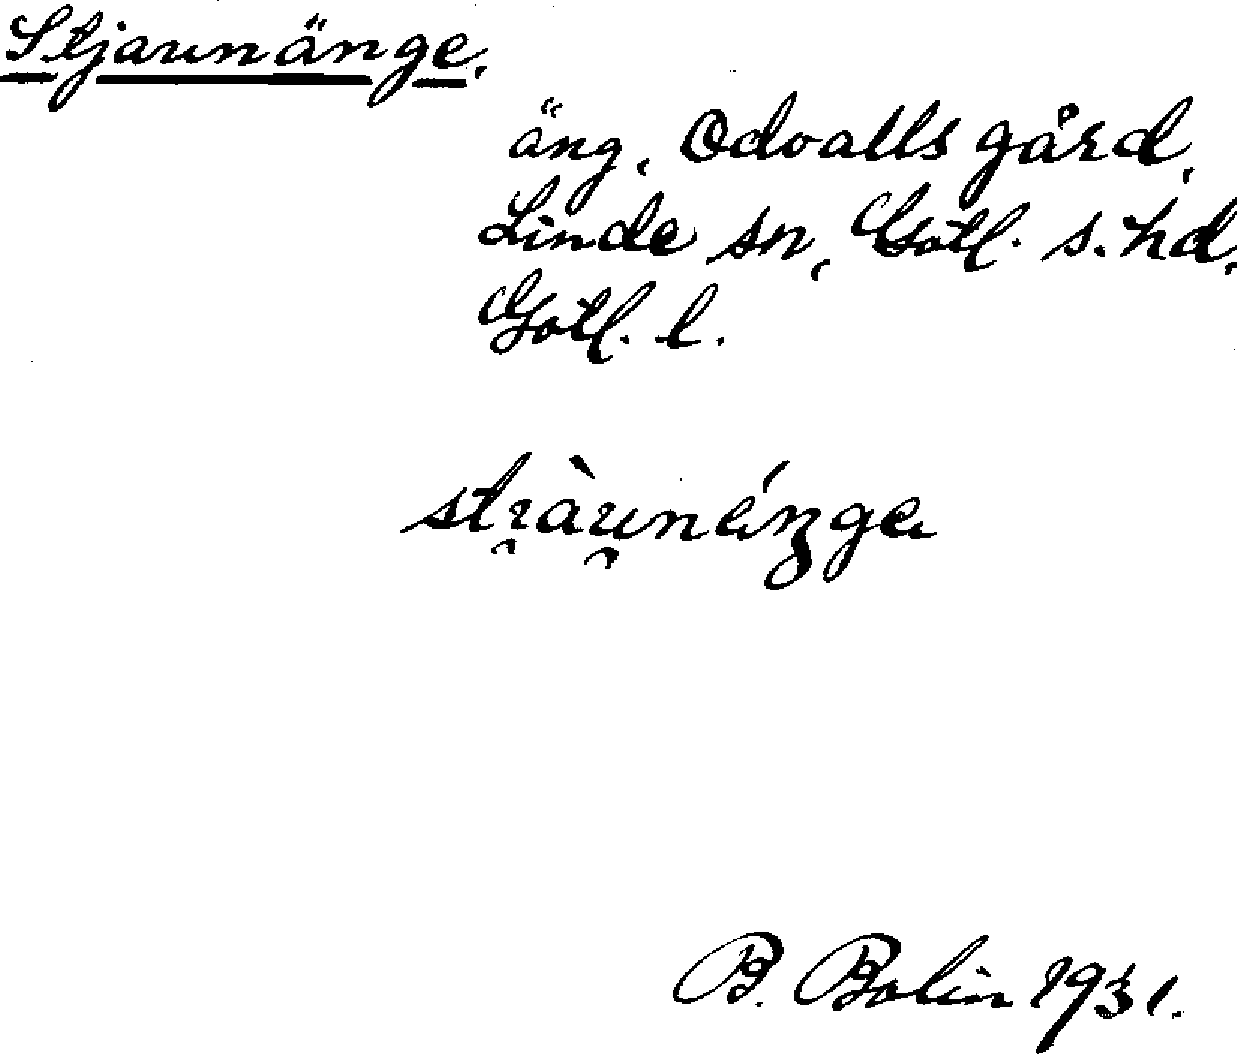 Stjaunänge,
äng, Odvalls gård,
Linde sn, Gotl. s. hd,
Gotl. l.
B. Bolin 1931.